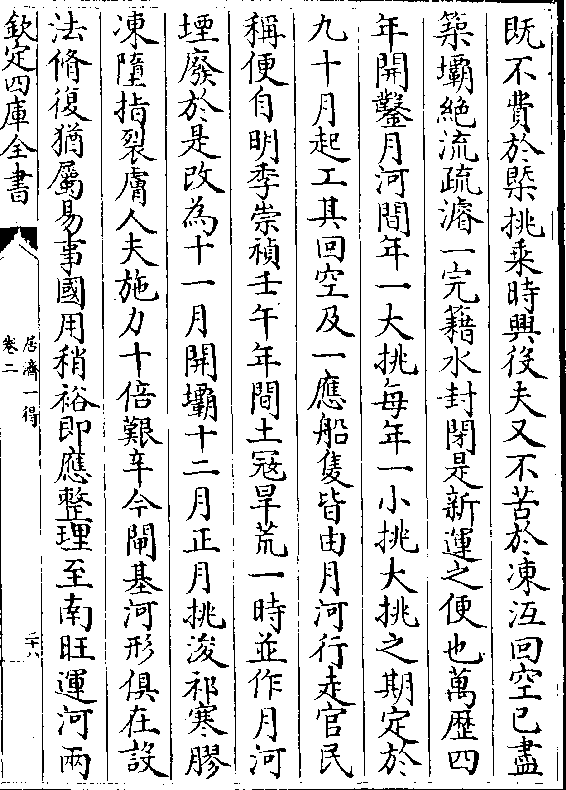 既不費於槩挑乘時興役夫又不苦於凍沍回空已盡
築壩絶流疏濬一完藉水封閉是新運之便也萬歴四
年開鑿月河間年一大挑每年一小挑大挑之期定於
九十月起工其回空及一應船隻皆由月河行走官民
稱便自明季崇禎壬午年間土冦旱荒一時並作月河
堙廢於是改為十一月開壩十二月正月挑浚祁寒膠
凍墮指裂膚人夫施力十倍艱辛今閘基河形俱在設
法脩復猶屬易事國用稍裕即應整理至南旺運河兩
欽定四庫全書
居濟一得
卷二
二十八